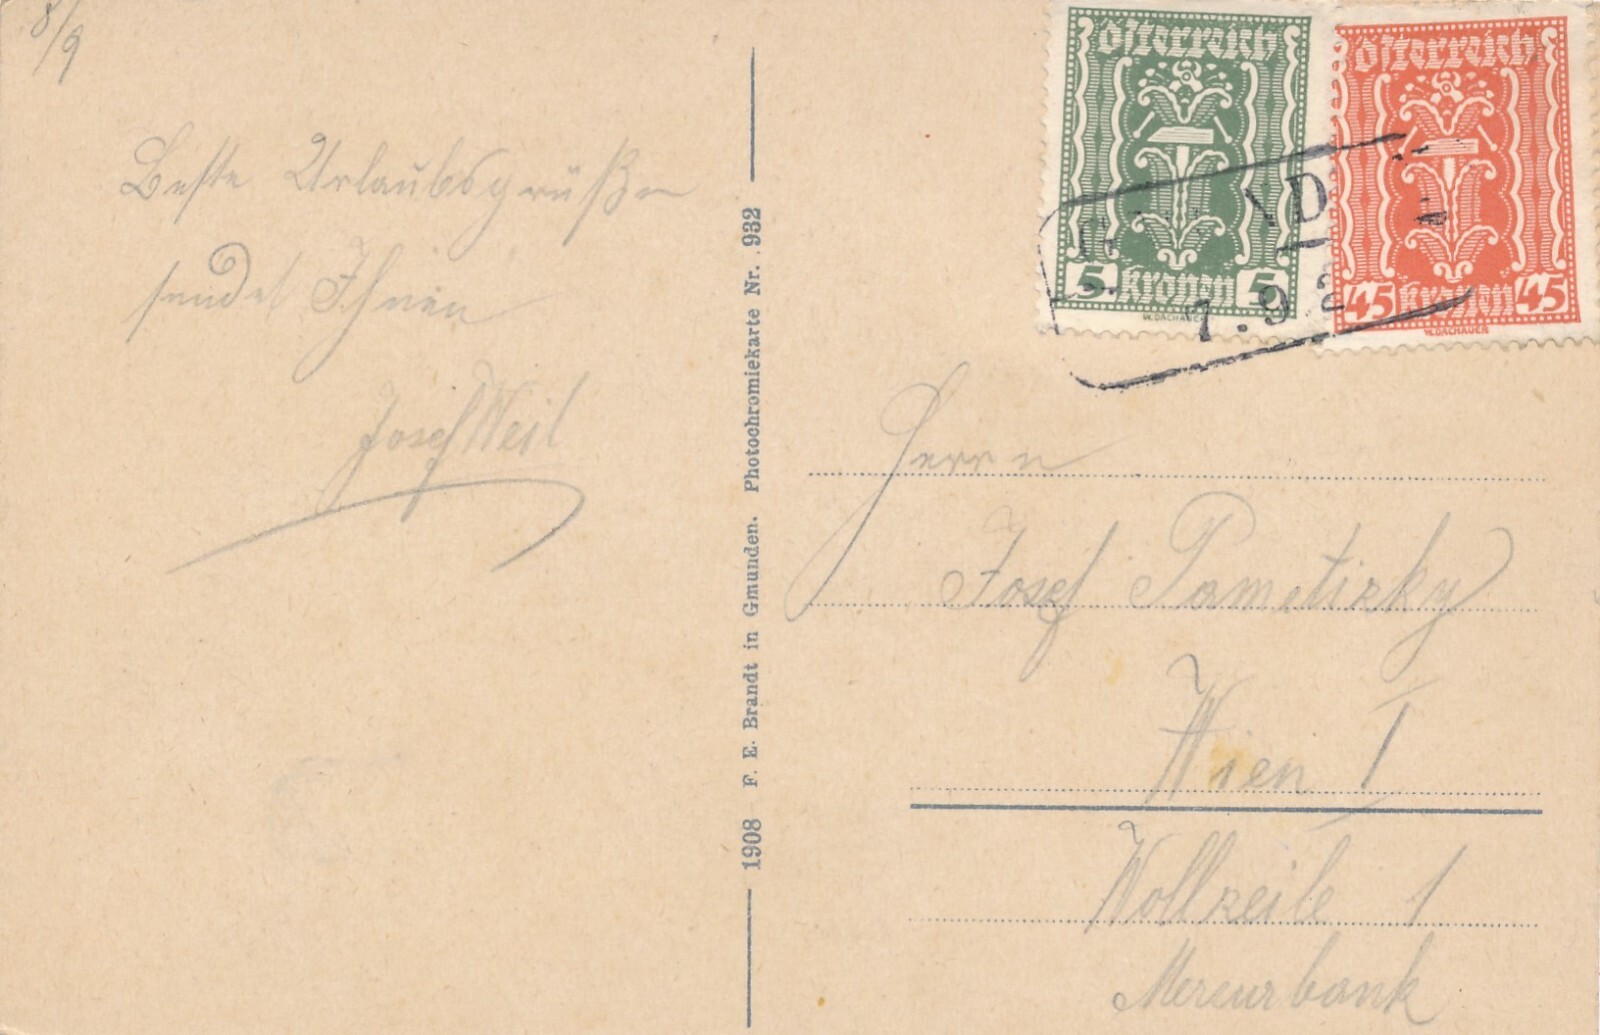 8/9
Beste Urlaubsgrüße
sendet Ihnen
Josef Weil
1908 F. E. Brandt in Gmunden. Photochromiekarte Nr. 932
Österreich
5 Kronen 5
W. DACHAUER
Österreich
45 Kronen 45
W. DACHAUER
7.9.2
Herrn
Josef Pametizky
Wien I
Wollzeile 1
Mercurbank